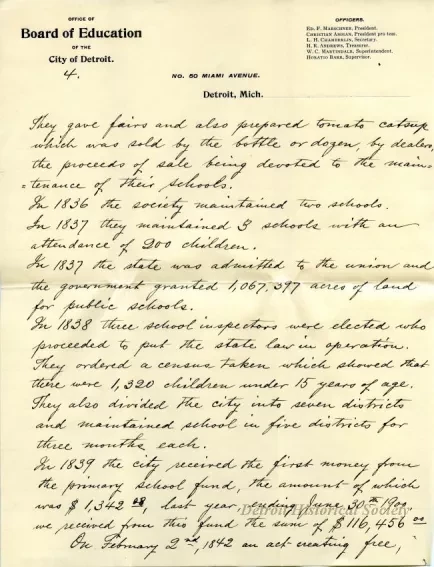 OFFICE OF
Board of Education
OF THE
City of Detroit.
OFFICERS.
ED. F. MARSCHNER, President.
CHRISTIAN ASMAN, President pro tem.
L. H. CHAMBERLIN, Secretary.
H. K. ANDREWS, Treasurer.
W. C. MARTINDALE, Superintendent.
HORATIO BARR, Supervisor.
4.
NO. 50 MIAMI AVENUE.
Detroit, Mich.
They gave fairs and also prepared tomato catsup
which was sold by the bottle or dozen, by dealers,
the proceeds of sale being devoted to the main-
=tenance of their schools.
In 1836 the society maintained two schools.
In 1837 they maintained 3 schools with an
attendance of 200 children.
In 1837 the state was admitted to the union and
the government granted 1,067,397 acres of land
for public schools.
In 1838 three school inspectors were elected who
proceeded to put the state law in operation.
They ordered a census taken which showed that
there were 1,320 children under 15 years of age.
They also divided the city into seven districts
and maintained school in five districts for
three months each.
In 1839 the city received the first money from
the primary school fund, the amount of which
was $1,342 08, last year, ending June 30th 1900,
Detroit Historical Society
we received from this fund the sum of $116,456 00
On February 2nd, 1842 an act creating free,